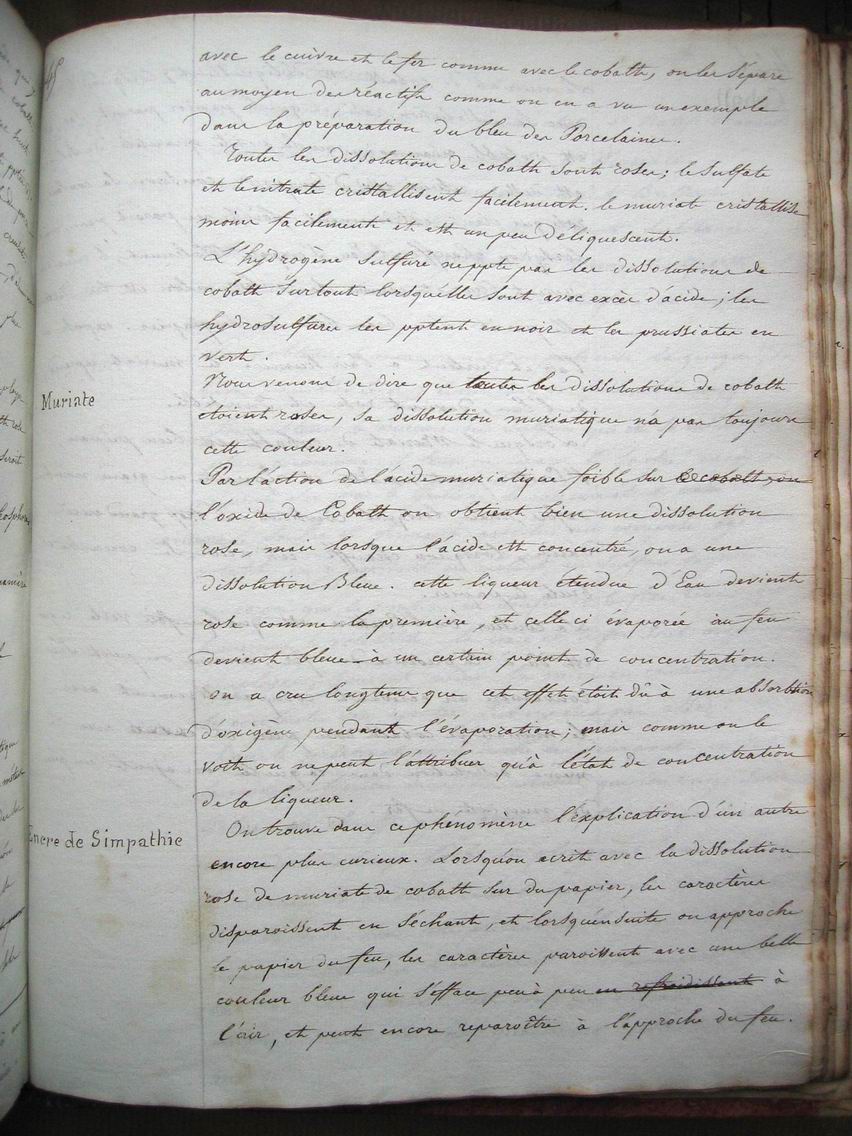 45
avec le cuivre et le fer comme avec le cobalt, on les sépare
au moyen des réactifs comme on en a vu un exemple
dans la préparation du bleu des Porcelaines.
Toutes les dissolutions de cobalt sont roses; le sulfate
et le nitrate cristallisent facilement. le muriate cristallise
moins facilement et est un peu déliquescent.
L'hydrogène sulfuré ne ppte pas les dissolutions de
cobalt surtout lorsqu'elles sont avec excès d'acide; les
hydrosulfures les pptent en noir et les prussiates en
vert.
Muriate
Nous venons de dire que toutes les dissolutions de cobalt
étoient roses, sa dissolution muriatique n'a pas toujours
cette couleur.
Par l'action de l'acide muriatique foible sur le cobalt, ou
l'oxide de Cobalt on obtient bien une dissolution
rose, mais lorsque l'acide est concentré, on a une
dissolution Bleue. cette liqueur étendue d'Eau devient
rose comme la première, et celle ci évaporée au feu
devient bleue à un certain point de concentration.
on a cru longtems que cet effet étoit dû à une absorbtion
d'oxigène pendant l'évaporation; mais comme on le
voit on ne peut l'attribuer qu'à l'état de concentration
de la liqueur.
Encre de Simpathie
On trouve dans ce phénomène l'explication d'un autre
encore plus curieux. Lorsqu'on ecrit avec la dissolution
rose de muriate de cobalt sur du papier, les caractères
disparoissent en séchant, et lorsqu'ensuite on approche
le papier du feu, les caractères paroissent avec une belle
couleur bleue qui s'efface peu à peu en refroidissant à
l'air, et peut encore reparoître à l'approche du feu.